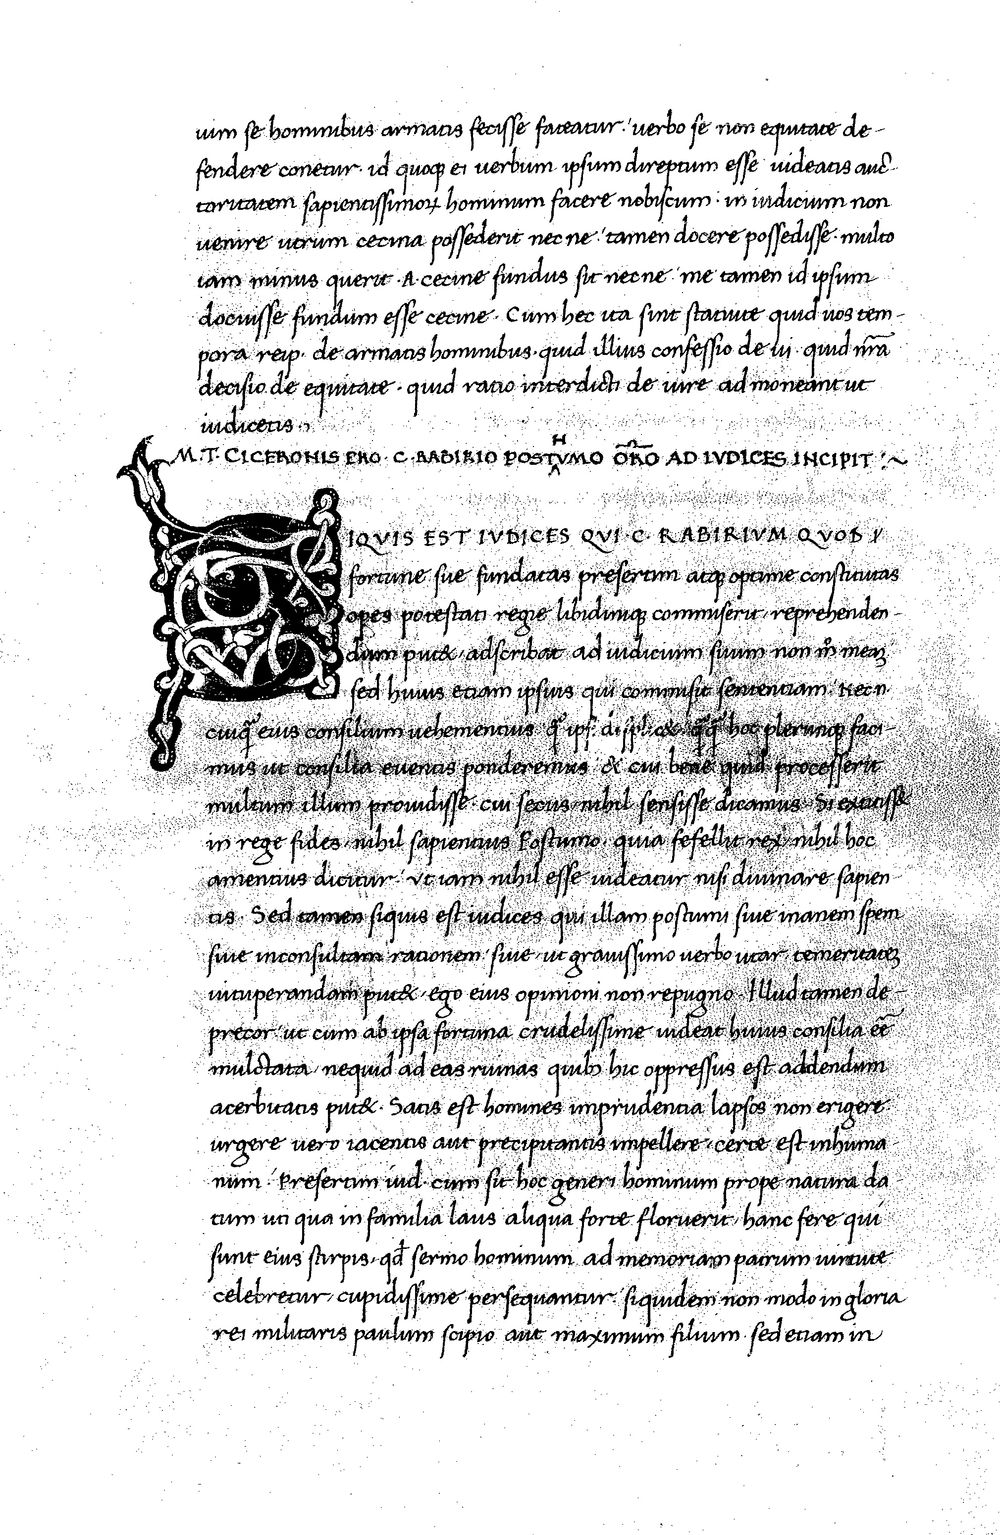 uim se hominibus armatis fecisse fateatur. uerbo se non equitate de-
fendere conetur. id quoq; ei uerbum ipsum direptum esse uideatis auc̄-
toritatem sapientissimoꝝ hominum facere nobiscum. in iudicium non
uenire utrum cecina possederit nec ne. tamen docere possedisse. multo
iam minus querit. A. cecine fundus sit necne me tamen id ipsum
docuisse fundum esse cecine. Cum hec ita sint statuite quid uos tem-
pora reip. de armatis hominibus. quid illius confessio de ui. quid nr̄a
decisio de equitate. quid ratio interdicti de iure admoneant ut
iudicetis.
M. T. CICERONIS PRO C. RABIRIO POSTHVMO ORŌ AD IVDICES INCIPIT
SIQVIS EST IVDICES QVI C. RABIRIVM QVOD I
fortune sue fundatas presertim atq; optime constitutas
opes potestati regie libidiniq; commiserit, reprehenden-
dum putet, adscribat ad iudicium suum non m̊ meaꝫ
sed huius etiam ipsius qui commisit sententiam. Nec n̄
cuiq̄ eius consilium uehementius q̄ ipsi displicet q̄q̄ hoc plerunq; faci-
mus ut consilia euentis ponderemus & cui bene quid processerit
multum illum prouidisse. cui secus nihil sensisse dicamus. Si extitisset
in rege fides, nihil sapientius Postumo, quia fefellit rex, nihil hoc
amentius dicitur. Vt iam nihil esse uideatur nisi diuinare sapien-
tis. Sed tamen siquis est iudices qui illam postumi siue inanem spem
siue inconsultam rationem, siue, ut grauissimo uerbo utar, temeritateꝫ
uituperandam putet, ego eius opinioni non repugno. Illud tamen de-
precor ut cum ab ipsa fortuna crudelissime uideat huius consilia eē
mulctata, nequid ad eas ruinas quibꝫ hic oppressus est addendum
acerbitatis putet. Satis est homines imprudentia lapsos non erigere
urgere uero iacentis aut precipitantis impellere, certe est inhuma-
num. Presertim iud. cum sit hoc generi hominum prope natura da-
tum uti qua in familia laus aliqua forte floruerit, hanc fere qui
sunt eius stirpis, qđ sermo hominum ad memoriam patrum uirtute
celebretur, cupidissime persequantur. siquidem non modo in gloria
rei militaris paulum scipio aut maximum filium. sed etiam in